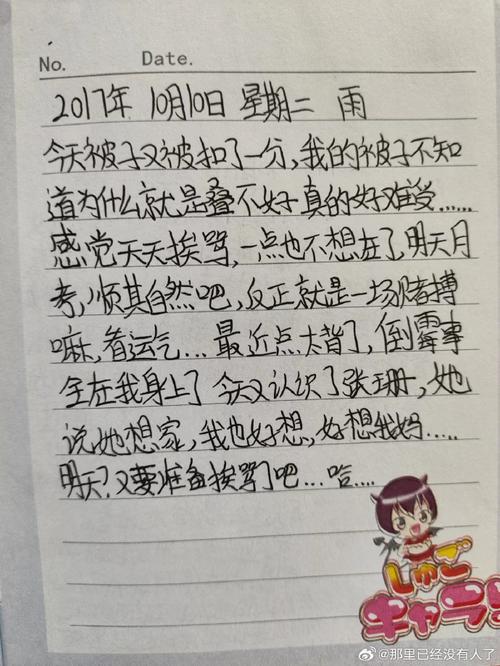 No. Date.
2017年 10月10日 星期二 雨
今天被子又被扣了一分,我的被子不知
道为什么就是叠不好真的好难受......
感觉天天挨骂,一点也不想在了,明天月
考,顺其自然吧,反正就是一场赌搏
嘛,看运气...最近点太背了,倒霉事
全在我身上了 今天又认识了张珊,她
说她想家,我也好想,好想我妈.....
明天?又要准备挨骂了吧...哈....
しゅご
キャラ!
@那里已经没有人了